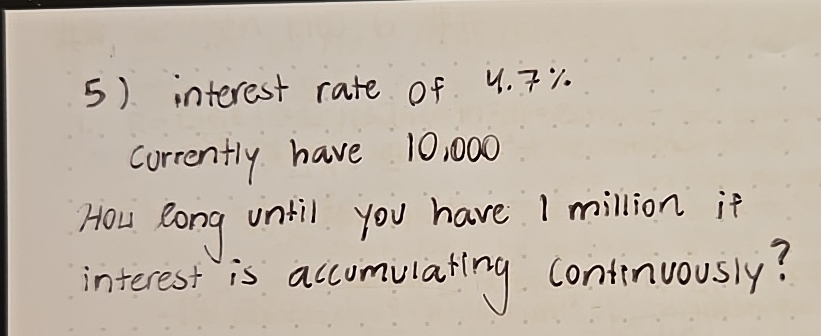 5) interest rate of 4.7%
Currently have 10,000
How long until you have 1 million if
interest is accumulating continuously?